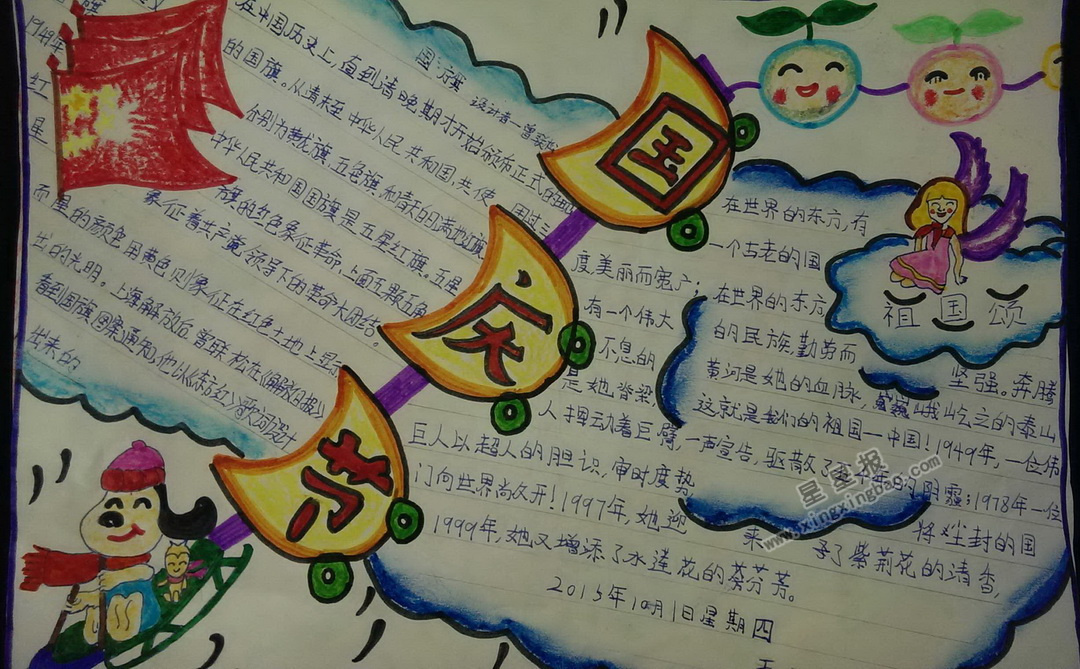 国庆节
1949年
红
星
在中国历史上,直到清晚期才开始颁布正式的
的国旗。从清末至中华人民共和国,共使
分别为黄龙旗、五色旗和青天白日满地红旗
中华人民共和国国旗是五星红旗。五星
旗的红色象征革命,上面五颗五角
象征着共产党领导下的革命大团结。
而星的颜色用黄色则象征在红色土地上显示
出的光明。上海解放后曾联松在《解放日报》
看到国旗图案通知,他从《东方红》歌词设计
出来的
国旗 设计者—曾联松
祖国颂
在世界的东方,有
一个古老的国
度美丽而宽广;在世界的东方
有一个伟大的民族,勤劳而坚强。奔腾
不息的黄河是她的血脉,巍峨屹立的泰山
是她脊梁,这就是我们的祖国—中国!1949年,一位伟
人挥动着巨臂,一声宣告,驱散了阴霾;1978年一位
巨人以超人的胆识,审时度势将尘封的国
门向世界尚久开!1997年,她迎来了紫荆花的清香,
1999年,她又增添了水莲花的芬芳。
2015年10月1日星期四
星星报
www.xingxingbao.com